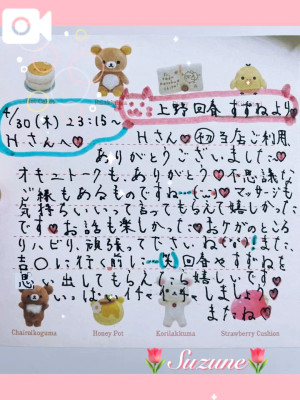 4/30(木)23:15〜
Hさんへ
上野回春 すずねより
Hさん 初 当店ご利用、
ありがとうございました
オキュートークも、ありがとう 不思議な
ご縁もあるものですね……(..) マッサージも
気持ちいいって言ってもらえて嬉しかった
です お話も楽しかった おケガのところ
リハビリ、頑張って下さいね(^^)! また、
吉〇に行く前に…笑 回春やすずねを
思い出してもらえたら嬉しいです
いっぱいイチャイチャしましょう
またね
Chairoikoguma
Honey Pot
Korilakkuma
Strawberry Cushion
Suzune